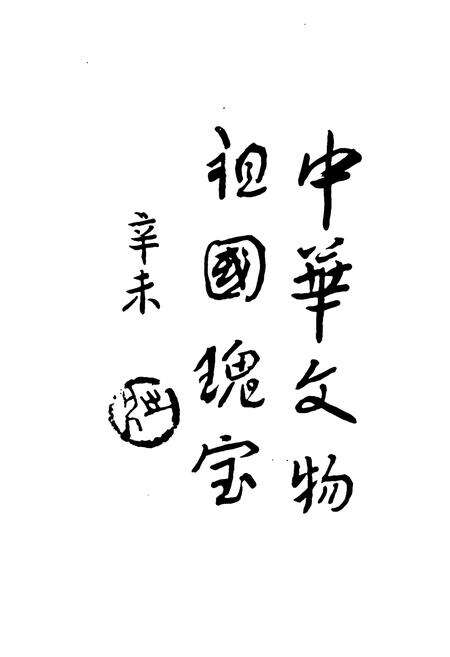 中華文物
祖國瑰宝
辛未